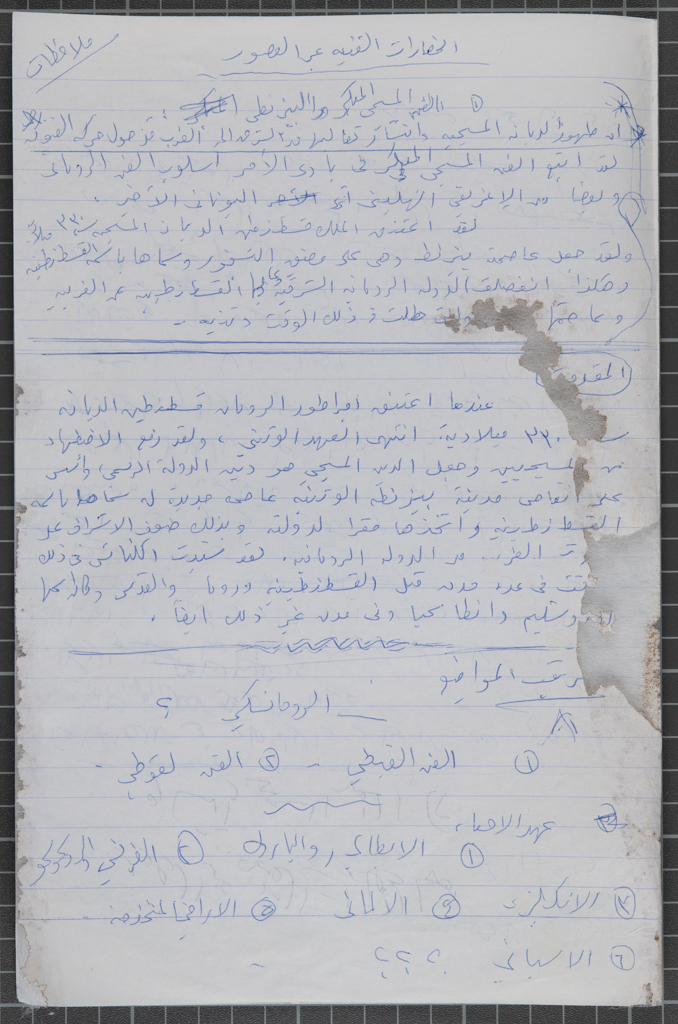 ملاحظات
الحضارات الفنية عبر العصور
① الفن المسيحي المبكر والبيزنطي
ان ظهور الديانة المسيحية وانتشار تعاليمها في الشرق الى الغرب قد حول حركة الفنون
لقد اتبع الفن المسيحي المبكر في بادئ الأمر اسلوب الفن الروماني
وبعضا من الإغريقي الهيليني أي اليوناني الأخر .
لقد اعتنق الملك قسطنطين الديانة المسيحية سنة ٣٣٠ ميلادية
ولقد جعل عاصمة بيزنطة وهي على مضيق البسفور وسماها باسمه القسطنطينية
وهكذا انفصلت الدولة الرومانية الشرقية القسطنطينية عن الغربية
وعاصمتها ظلت في ذلك الوقت وثنية -
المقدمة
عندما اعتنق امبراطور الرومان قسطنطين الديانة
٣٣٠ ميلادية. انتهى العهد الوثني ، ولقد رفع الاضطهاد
المسيحيين وجعل الدين المسيحي هو دين الدولة الرسمي وأسس
على انقاض مدينة بيزنطة الوثنية عاصمة جديدة له سماها باسمه
القسطنطينية واتخذها مقرا لدولته وبذلك ضمن الاشراف على
من الدولة الرومانية. لقد شيدت الكنائس في ذلك
في عدة مدن مثل القسطنطينية وروما والقدس وكان اسمها
وانطاكيا وفي مدن غير ذلك ايضا .
ترتيب المواضيع
الرومانسكي ؟
① الفن القبطي - ② الفن القوطي -
عهد الاحياء
① الايطالي والباروك ② الفرنسي والركوكو
③ الانكليزي ④ الالماني ⑤ الاراضي المنخفضة -
⑥ الاسباني ؟ ؟ ؟ -